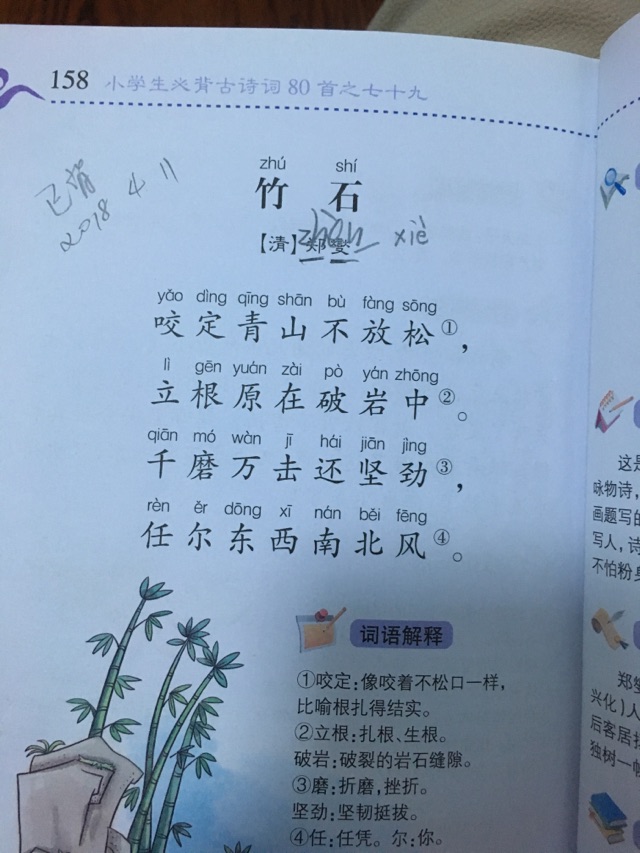 158 小学生必背古诗词80首之七十九
已背
2018 4 11
zhú shí
竹 石
zhèn xiè
【清】郑燮
yǎo dìng qīng shān bù fàng sōng
咬定青山不放松①，
lì gēn yuán zài pò yán zhōng
立根原在破岩中②。
qiān mó wàn jī hái jiān jìng
千磨万击还坚劲③，
rèn ěr dōng xī nán běi fēng
任尔东西南北风④。
词语解释
①咬定：像咬着不松口一样，
比喻根扎得结实。
②立根：扎根、生根。
破岩：破裂的岩石缝隙。
③磨：折磨，挫折。
坚劲：坚韧挺拔。
④任：任凭。尔：你。
这是
咏物诗，
画题写的
写人，诗
不怕粉身
郑燮
兴化）人
后客居扬
独树一帜